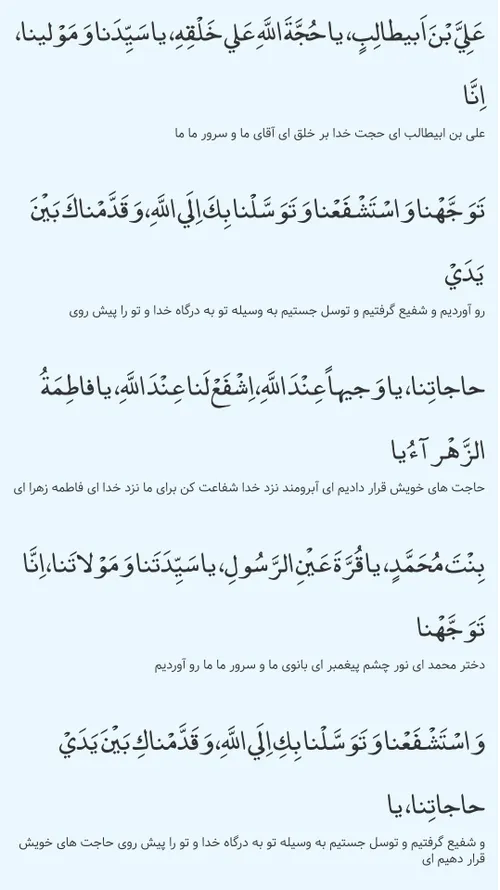 عَلِيَّ بْنَ اَبيطالِبٍ، يا حُجَّةَ اللَّهِ عَلي خَلْقِهِ، يا سَيِّدَنا وَ مَوْلينا،
اِنَّا
علی بن ابیطالب ای حجت خدا بر خلق ای آقای ما و سرور ما ما
تَوَجَّهْنا وَ اسْتَشْفَعْنا وَ تَوَسَّلْنا بِكَ اِلَي اللَّهِ، وَ قَدَّمْناكَ بَيْنَ
يَدَيْ
رو آوردیم و شفیع گرفتیم و توسل جستیم به وسیله تو به درگاه خدا و تو را پیش روی
حاجاتِنا، يا وَجيهاً عِنْدَ اللَّهِ، اِشْفَعْ لَنا عِنْدَ اللَّهِ، يا فاطِمَةُ
الزَّهْرآءُ يا
حاجت های خویش قرار دادیم ای آبرومند نزد خدا شفاعت کن برای ما نزد خدا ای فاطمه زهرا ای
بِنْتَ مُحَمَّدٍ، يا قُرَّةَ عَيْنِ الرَّسُولِ، يا سَيِّدَتَنا وَ مَوْلاتَنا، اِنَّا
تَوَجَّهْنا
دختر محمد ای نور چشم پیغمبر ای بانوی ما و سرور ما ما رو آوردیم
وَ اسْتَشْفَعْنا وَ تَوَسَّلْنا بِكِ اِلَي اللَّهِ، وَ قَدَّمْناكِ بَيْنَ يَدَيْ
حاجاتِنا، يا
و شفیع گرفتیم و توسل جستیم به وسیله تو به درگاه خدا و تو را پیش روی حاجت های خویش
قرار دهیم ای